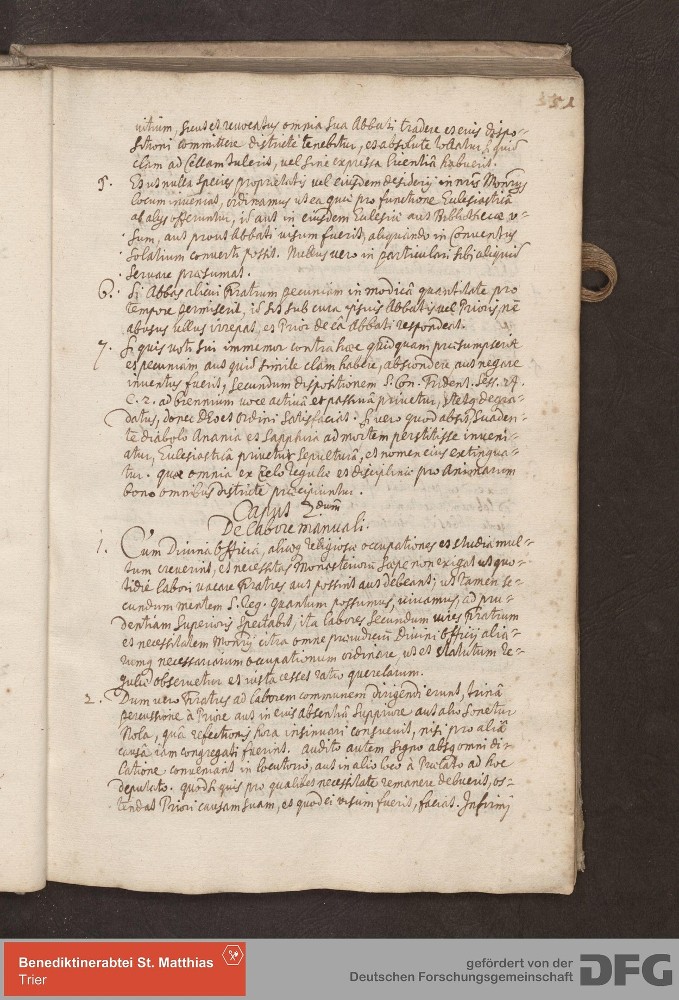 351
vitium, sicut et revocatus omnia sua Abbati tradere et eius dispo-
sitioni committere districtè tenebitur, et absolutè tollatur, quid
clam ad Cellam tulerit, vel sine expressa licentiâ habuerit.
5. Et ut nulla species proprietatis vel eiusdem desiderij in nris Monrys
locum inveniat, ordinamus ut ea quae pro functione Ecclesiasticâ
ab alijs offeruntur, id aut in eiusdem Ecclesiae aut Bibliothecae u-
sum, aut prout Abbati visum fuerit, aliquando in Conventus
solatium converti possit. Nullus vero in particulari sibi aliquid
servare praesumat.
6. Si Abbas alicui Fratrum pecuniam in modicâ quantitate pro
tempore permiserit, id sit sub cura ipsius Abbatis vel Prioris, nè
abusus ullus irrepat, et Prior de eâ Abbati respondeat.
7. Si quis voti sui immemor contra hoc quidquam praesumpserit
et pecuniam aut quid simile clam habere, abscondere aut negare
inventus fuerit, secundum dispositionem S. Con. Trident. Sess. 24.
c. 2. ad biennium voce activâ et passivâ privetur,
datus, donec Deo et ordini satisfaciat. Si vero quod absq Suaden-
te diabolo Anania et Sapphira ad mortem perstitisse inveni-
atur, Ecclesiasticâ privetur sepulturâ, et nomen eius extingua-
tur. quae omnia ex zelo regulae et disciplinae pro Animarum
bono omnibus districtè praecipiuntur.
Caput 2dum
De labore manuali.
1. Cum Divina Officia, aliaeq religiosae occupationes et studia mul-
tum creverint, et necessitas Monasteriorum saepe non exigat ut quo-
tidiè labori vacare Fratres aut possint aut debeant; ut tamen se-
cundum mentem S. Reg. quantum possumus, vivamus, ad pru-
dentiam Superioris spectabit, ita labores secundum vires Fratrum
et necessitatem Monrij citra omne Divini Officij alia-
rumq necessariarum occupationum ordinare, ut et statutum re-
gulae observetur et iusta cesset ratio querelarum.
2. Dum vero Fratres ad laborem communem dirigendi erunt, trinâ
percussione à Priore aut in eius absentiâ Suppriore aut alio sonetur
Nola, quâ refectionis hora insinuari consuevit, nisi pro aliâ
causâ iam congregati fuerint. audito autem signo absq omni di-
latione conveniant in locutorio, aut in alio loco à Praelato ad hoc
deputato. quod si quis pro qualibet necessitate remanere debuerit, os-
tendat Priori causam suam, et quod ei visum fuerit, faciat. Infirmi
Benediktinerabtei St. Matthias
Trier
gefördert von der
Deutschen Forschungsgemeinschaft
DFG